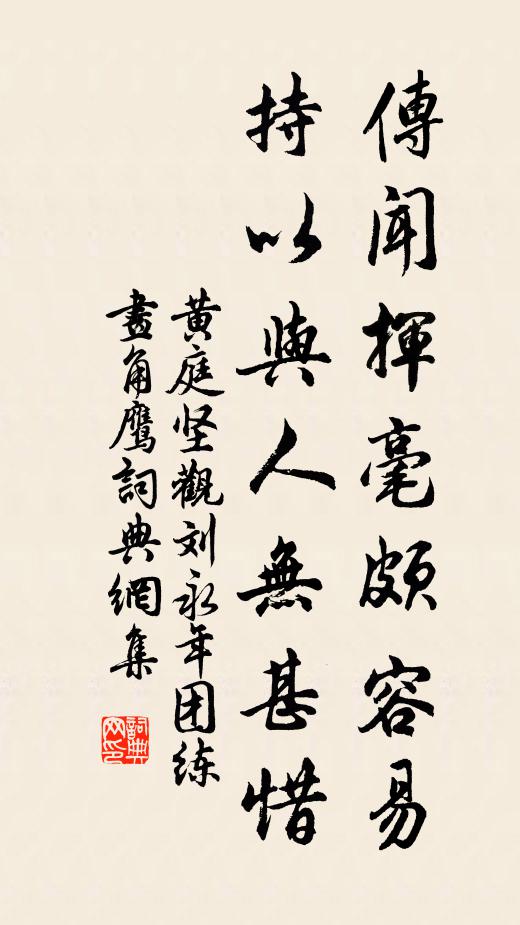 傳聞揮毫頗容易
持以與人無甚惜
黄庭坚觀刘永年团练
畫角鷹詞典網集
詞典
网印